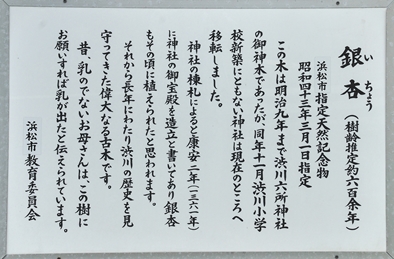 いちょう
銀杏（樹齢推定約六百余年）
浜松市指定天然記念物
昭和四十三年三月一日指定
この木は明治九年まで渋川六所神社
の御神木であったが、同年十一月渋川小学
校新築にともない神社は現在のところへ
移転しました。
神社の棟札によると康安二年（一三六一年）
に神社の御宝殿を造立と書いてあり銀杏
もその頃に植えられたと思われます。
それから長年にわたり渋川の歴史を見
守ってきた偉大なる古木です。
昔、乳のでないお母さんは、この樹に
お願いすれば乳が出たと伝えられています。
浜松市教育委員会